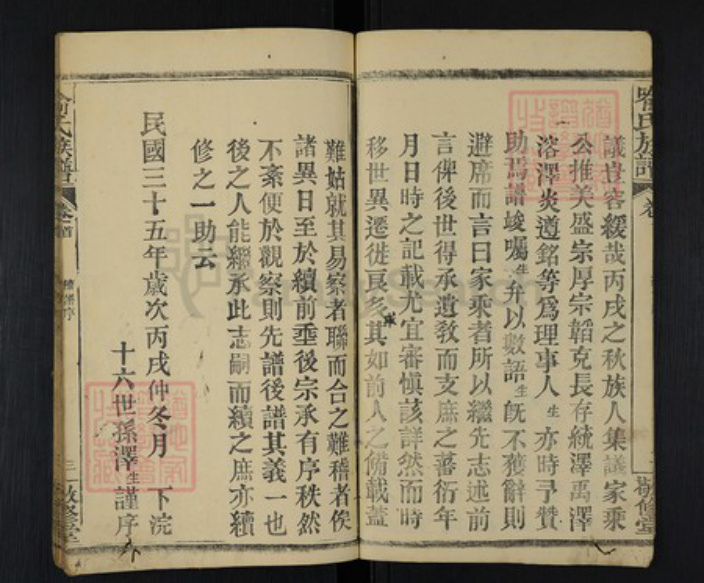 喻氏族譜 卷
敬修堂
議豈容緩哉丙戌之秋族人集議家乘
公推美盛宗厚宗韜克長存統澤禹澤
溶澤炎遵銘等爲理事人生亦時予贊
助焉譜峻囑生弁以數語生旣不獲辭則
避席而言曰家乘者所以繼先志述前
言俾後世得承遺敎而支庶之蕃衍年
月日時之記載尤宜審愼該詳然而時
移世異遷徙良多其如前人之備載蓋
難姑就其易察者聯而合之難稽者俟
諸異日至於續前垂後宗承有序秩然
不紊便於觀察則先譜後譜其義一也
後之人能繼承此志嗣而續之庶亦續
修之一助云
民國三十五年歲次丙戌仲冬月 下浣
十六世孫澤生謹序
喻氏族譜 卷首 續譜序
三 敬修堂